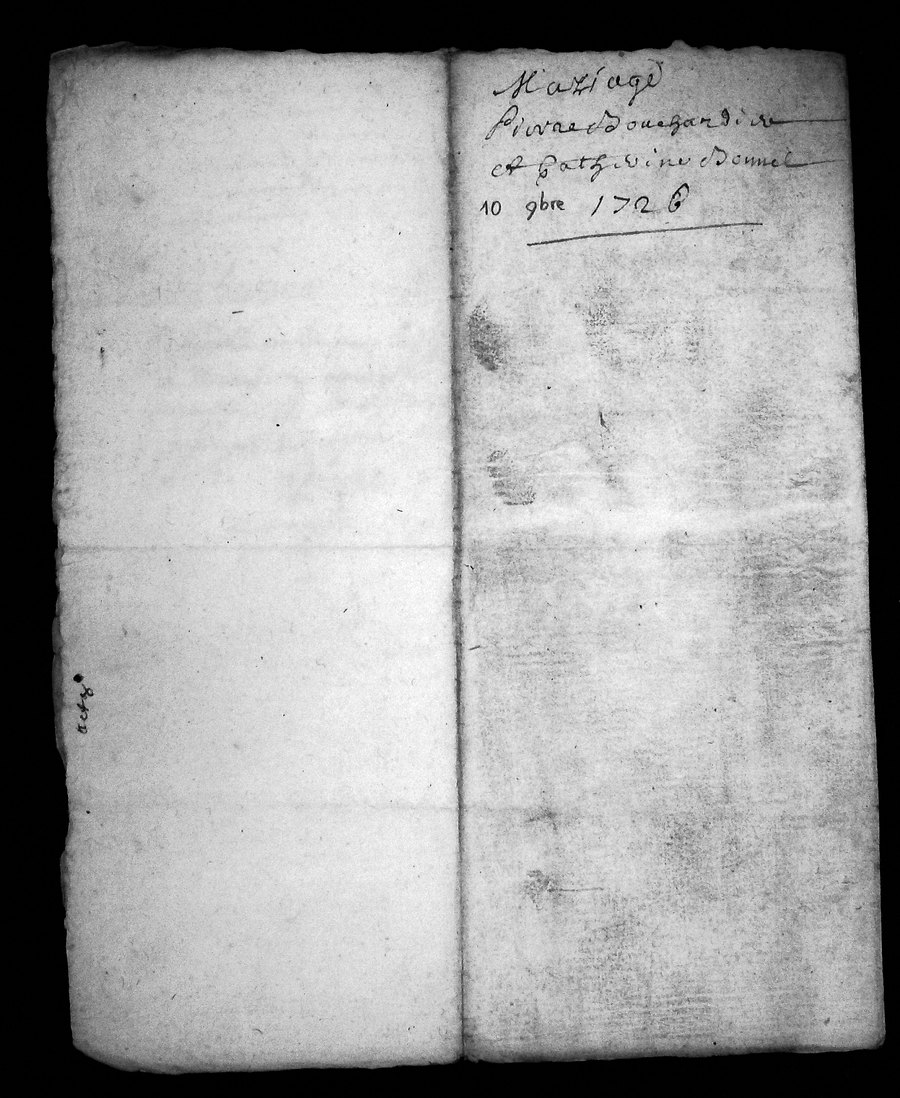 Mariage
Pierre Bouchardie
et Catherine Bonnel
10 9bre 1726
acte